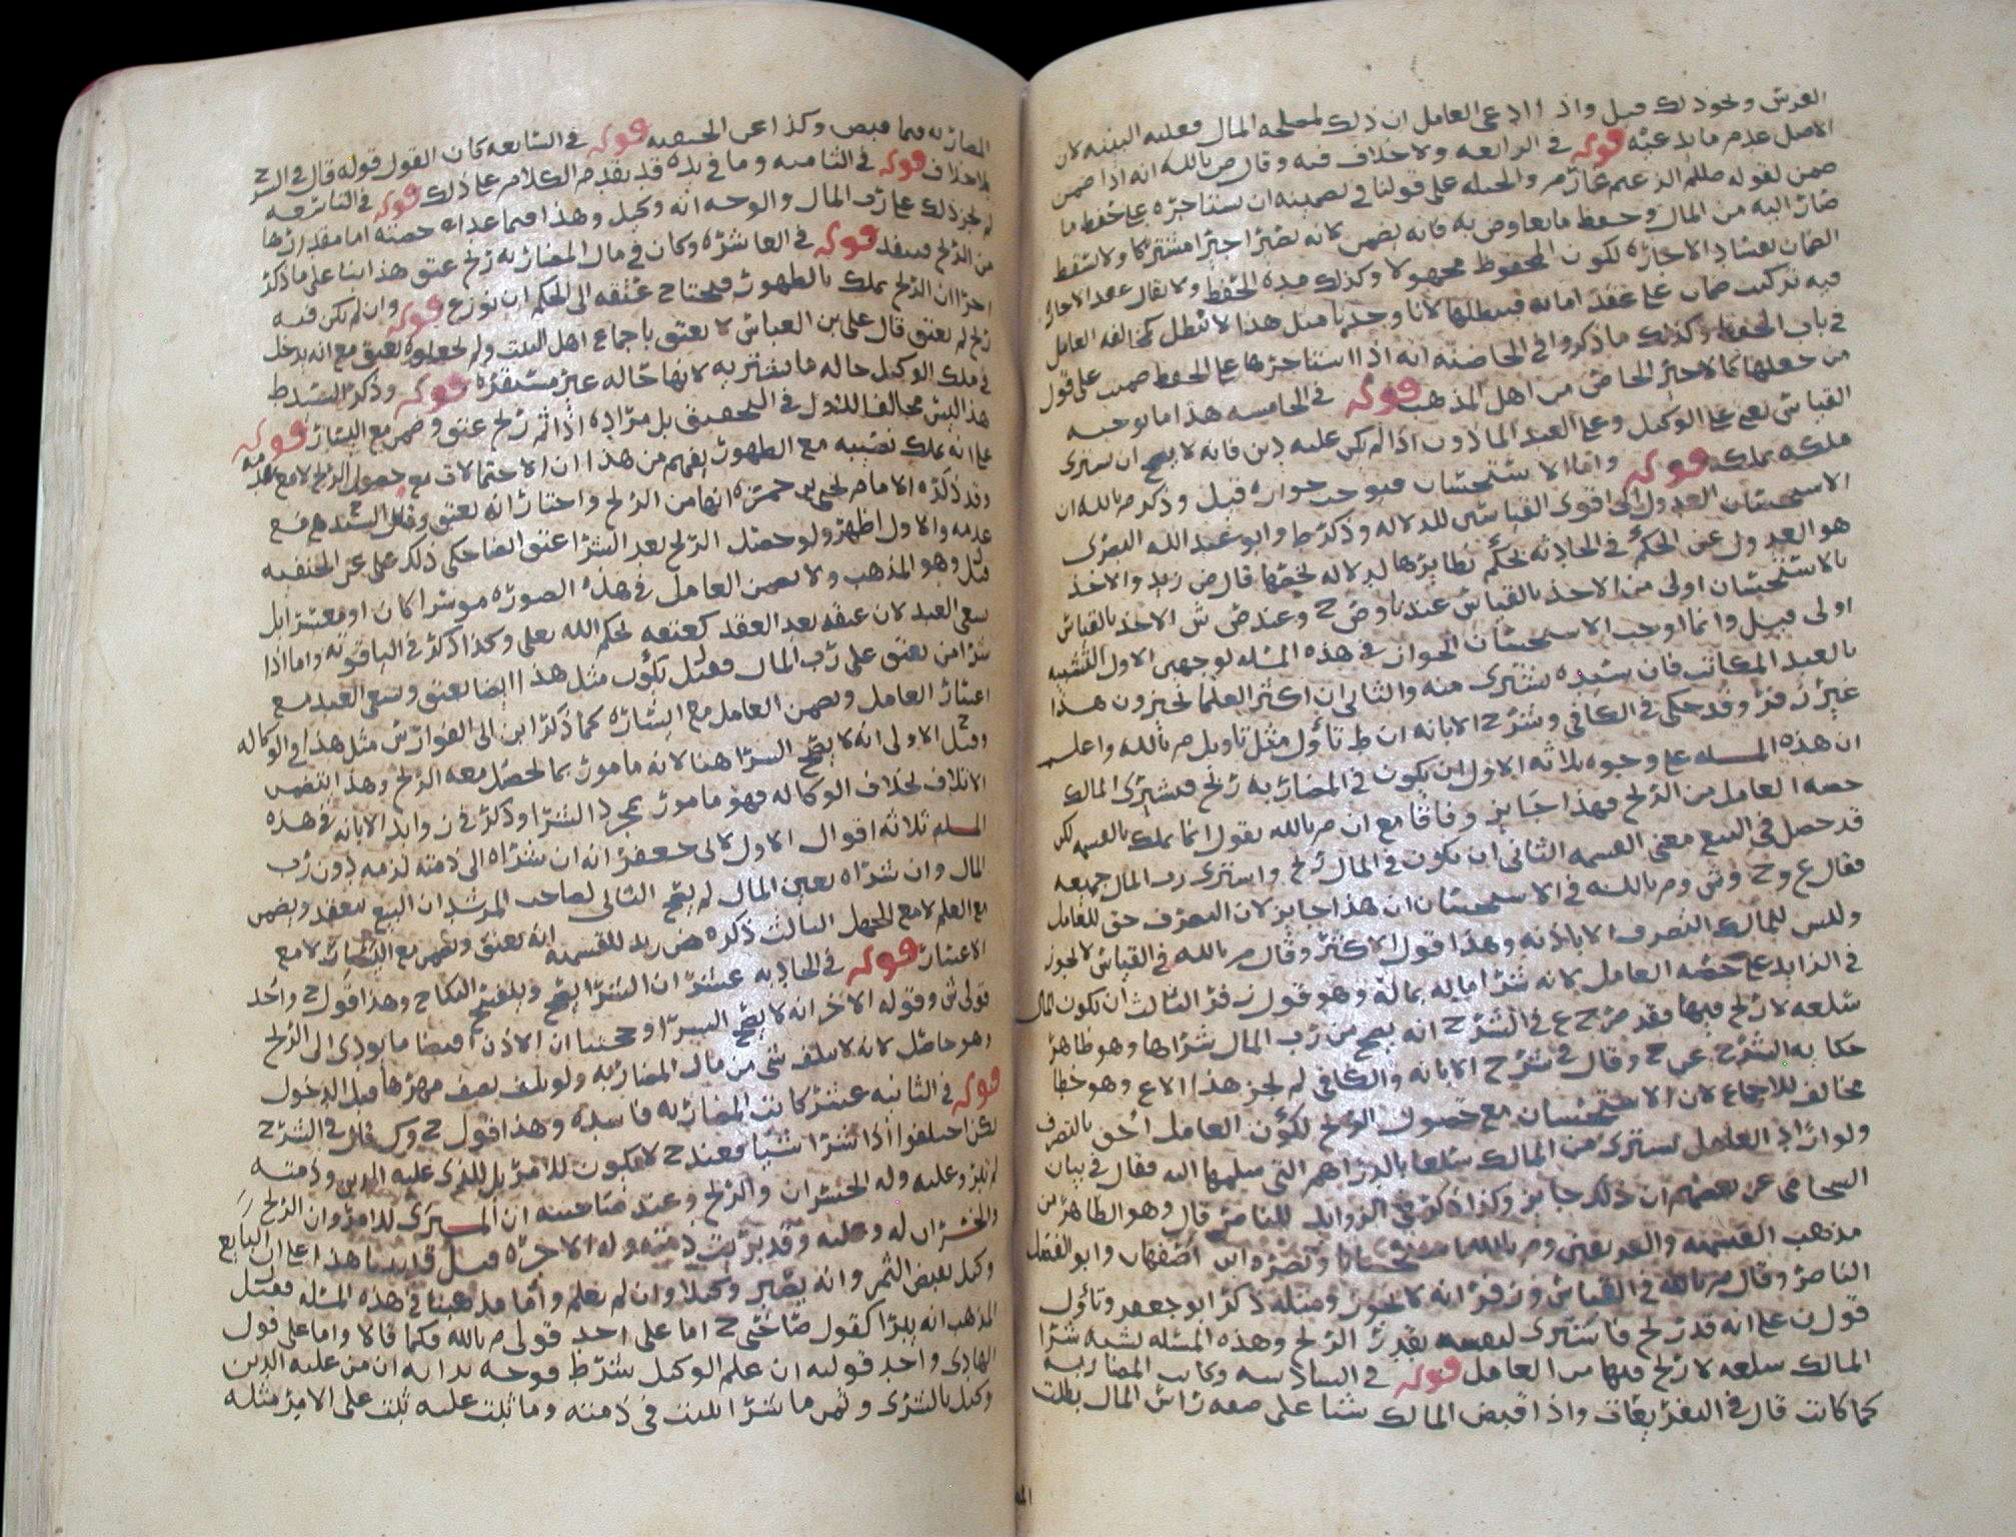 الغرس ونحو ذلك قيل واذا ادعى العامل ان ذلك لمصلحه المال فعليه البينه لان
الاصل عدم ما يدعيه قوله في الرابعه ولا خلاف فيه وقال م بالله انه اذا ضمن
ضمن لقوله صللم الزعيم غارم والحيله على قولنا في تضمينه ان يستاجره على حفظ ما
صار اليه من المال وحفظ ما يعاوض به فانه يضمن لانه يصير اجيرا مشتركا ولا يسقط
الضمان بفساد الاجاره لكون المحفوظ مجهولا وكذلك مدة الحفظ ولا يقال عقد الاجاره
فيه تركيب ضمان على عقد امانه فيبطلها لانا وجدنا مثل هذا لا يبطل كمخالفه العامل
في باب الحفظ وكذلك ما ذكروا في الحاضنه انه اذا استاجرها على الحفظ ضمنت على قول
من جعلها كالاجير الخاص من اهل المذهب قوله في الخامسه هذا ما يوجبه
القياس يعني على الوكيل وعلى العبد الماذون اذا لم يكن عليه دين فانه لا يصح ان يشتري
ملكه بملكه قوله واما الاستحسان فيوجب جوازه قيل وذكر م بالله ان
الاستحسان العدول الى اقوى القياسين للدلاله وذكر ط وابو عبد الله البصري
هو العدول عن الحكم في الحادثه بحكم نظايرها لدلاله تخصها قال ض زيد والاخذ
بالاستحسان اولى من الاخذ بالقياس عندنا وض ح وعند ض ش الاخذ بالقياس
اولى قيل وانما اوجب الاستحسان الجواز في هذه المسله لوجهين الاول التشبيه
بالعبد المكاتب فان سيده يشتري منه والثاني ان اكثر العلما يجيزون هذا
غير زفر وقد حكى في الكافي وشرح الابانه ان ط تاول مثل تاويل م بالله واعلم
ان هذه المسله على وجوه ثلاثه الاول ان يكون في المضاربه ربح فيشتري المالك
حصه العامل من الربح فهذا جايز وفاقا مع ان م بالله يقول انما يملك بالقسمه لكن
قد حصل في البيع معنى القسمه الثاني ان يكون في المال ربح واشترى رب المال جميعه
فقال ع وح وش وم بالله في الاستحسان ان هذا جايز لان التصرف حق للعامل
وليس للمالك التصرف الا باذنه وهذا قول الاكثر وقال م بالله في القياس لا يجوز
في الزايد على حصه العامل لانه شرا ماله بماله وهو قول زفر الثالث ان يكون المال
سلعه لا ربح فيها فقد صرح ع في الشرح انه يصح من رب المال شراها وهو ظاهر
حكايه الشرح عن ح وقال في شرح الابانه والكافي لم يجز هذا الا ع وهو خطا
مخالف للاجماع لان الاستحسان مع حصول الربح لكون العامل احق بالتصرف
ولو اراد العامل يشتري من المالك سلعا بالدراهم التي سلمها اليه فقال في بيان
السحامي عن بعضهم ان ذلك جايز وكذا ذكر في الزوايد للناصر قال وهو الظاهر من
مذهب القسميه والفريقين وم بالله استحسانا ونصره ابن اصفهان وابو الفضل
الناصر وقال م بالله في القياس وزفر انه لا يجوز ومثله ذكر ابو جعفر وتاول
قول ن على انه قد ربح فاشترى لنفسه بقدر الربح وهذه المسئله تشبه شرا
المالك سلعه لا ربح فيها من العامل قوله في السادسه وكانت المضاربه
كما كانت قال في التفريعات واذا قبض المالك شيا على صفه راس المال بطلت
المضاربه فيما قبض وكذا عن الحنفيه قوله في السابعه كان القول قوله قال في الشرح
بلا خلاف قوله في الثامنه وما في يده قد تقدم الكلام على ذلك قوله في التاسعه
لم يجز ذلك على رب المال والوجه انه وكيل وهذا فيما عدا حصته اما مقدارها
من الربح فينفذ قوله في العاشره وكان في مال المضاربه ربح عتق هذا بنا على ما ذكر
اخرا ان الربح يملك بالظهور فيحتاج عتقه الى الحكم ان نوزع قوله وان لم يكن فيه
ربح لم يعتق قال علي بن العباس لا يعتق باجماع اهل البيت ولم يجعلوه يعتق مع انه يدخل
في ملك الوكيل حاله ما يشتريه لانها حاله غير مستقره قوله وذكر السيد ط
هذا ليس مخالفا للاول في التحقيق بل مراده اذا ثم ربح عتق وضمن مع اليسار قوله
على انه يملك نصيبه مع الظهور يفهم من هذا ان الاحتمالات مع حصول الربح لا مع عدمه
وقد ذكره الامام يحيى بن حمزه انها من الربح واختار انه يعتق وقال السيد هي مع
عدمه والاول اظهر ولو حصل الربح بعد الشرا عتق ايضا حكى ذلك علي عن الحنفيه
قيل وهو المذهب ولا يضمن العامل في هذه الصوره موسرا كان او معسرا بل
يسعى العبد لان عتقه بعد العقد كعتقه بحكم الله تعالى وكذا ذكر في الياقوته واما اذا
شرا من يعتق على رب المال فقيل يكون مثل هذا ايضا يعتق ويسعى العبد مع
اعسار العامل ويضمن العامل مع اليسار كما ذكر ابن ابي الفوارس مثل هذا في الوكاله
وقيل الاولى انه لا يصح الشرا هنا لانه مامور بما يحصل معه الربح وهذا يتضمن
الاتلاف بخلاف الوكاله فهو مامور بمجرد الشرا وذكر في زوايد الابانه في هذه
المسله ثلاثه اقوال الاول لابي جعفر انه ان شراه الى ذمته لزمه دون رب
المال وان شراه بعين المال لم يصح الثاني لصاحب المرشد ان البيع ينعقد ويضمن
مع العلم لا مع الجهل الثالث ذكره ض زيد للقسميه انه يعتق ويضمن مع اليسار لا مع
الاعسار قوله في الحاديه عشر ان الشرا يصح وينفسخ النكاح وهذا قول ح واحد
قولي ش وقوله الاخر انه لا يصح الشرا وحجتنا ان الاذن اقتضا ما يودي الى الربح
وهو حاصل لانه لا يتلف شي من مال المضاربه ولو تلف نصف مهرها قبل الدخول
قوله في الثانيه عشر كانت المضاربه فاسده وهذا قول ح وك قال في الشرح
لكن اختلفوا اذا شرا شيا فعند ح لا يكون للامر بل للذي عليه الدين وذمته
لم تبر وعليه وله الخسران والربح وعند صاحبيه ان المشترى للامر وان الربح
والخسران له وعليه وقد بريت ذمته وله الاجره قيل قد بنيا هذا على ان البايع
وكيل بقبض الثمن وانه يصير وكيلا وان لم يعلم واما مذهبنا في هذه المسله فقيل
المذهب انه يبرا كقول صاحبي ح اما على احد قولي م بالله فكما قالا واما على قول
الهادي واحد قوليه ان علم الوكيل شرط فوجه برايه ان من عليه الدين
وكيل بالشرى وثمن ما شرا يثبت في ذمته وما ثبت عليه ثبت على الامر مثله